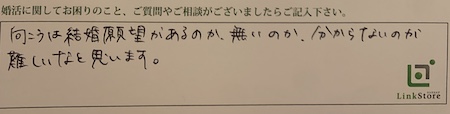 婚活に関してお困りのこと、ご質問やご相談がございましたらご記入下さい。
向こうは結婚願望があるのか、無いのか、分からないのが
難しいなと思います。
LinkStore